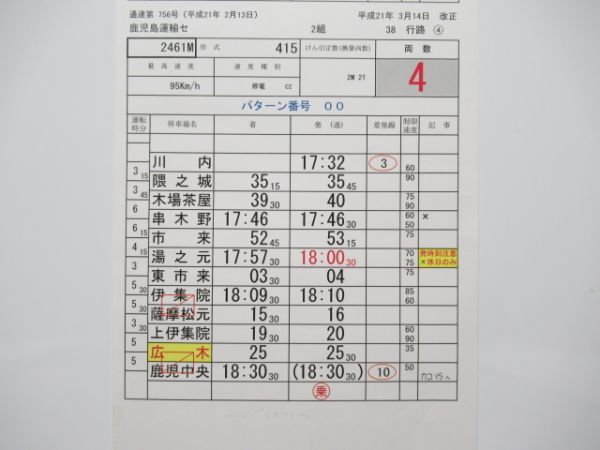 通達第 756号（平成21年 2月13日） 平成21年 3月14日 改正
鹿児島運輸セ 2組 38 行路 ④
2461M 形式 415 けん引定数(換算両数) 両数
最高速度 速度種別 2M 2T 4
95Km/h 停電 C2
パターン番号 ００
運転時分 停車場名 着 発（通） 着発線 制限速度 記事
川内 17:32 3 60
3 15 隈之城 35 15 35 45 90
3 45 木場茶屋 39 30 40 75 90
6 串木野 17:46 17:46 30 60 50 ×
6 市来 52 45 53 15 75
4 15 湯之元 17:57 30 18:00 30 70 75 発時刻注意 ×休日のみ
3 東市来 03 30 04
5 30 伊集院 18:09 30 18:10 85 60
5 30 薩摩松元 15 30 16
3 30 上伊集院 19 30 20 60 90
5 広木 25 25 30 35
5 鹿児中央 18:30 30 (18:30 30) 10 50
乗